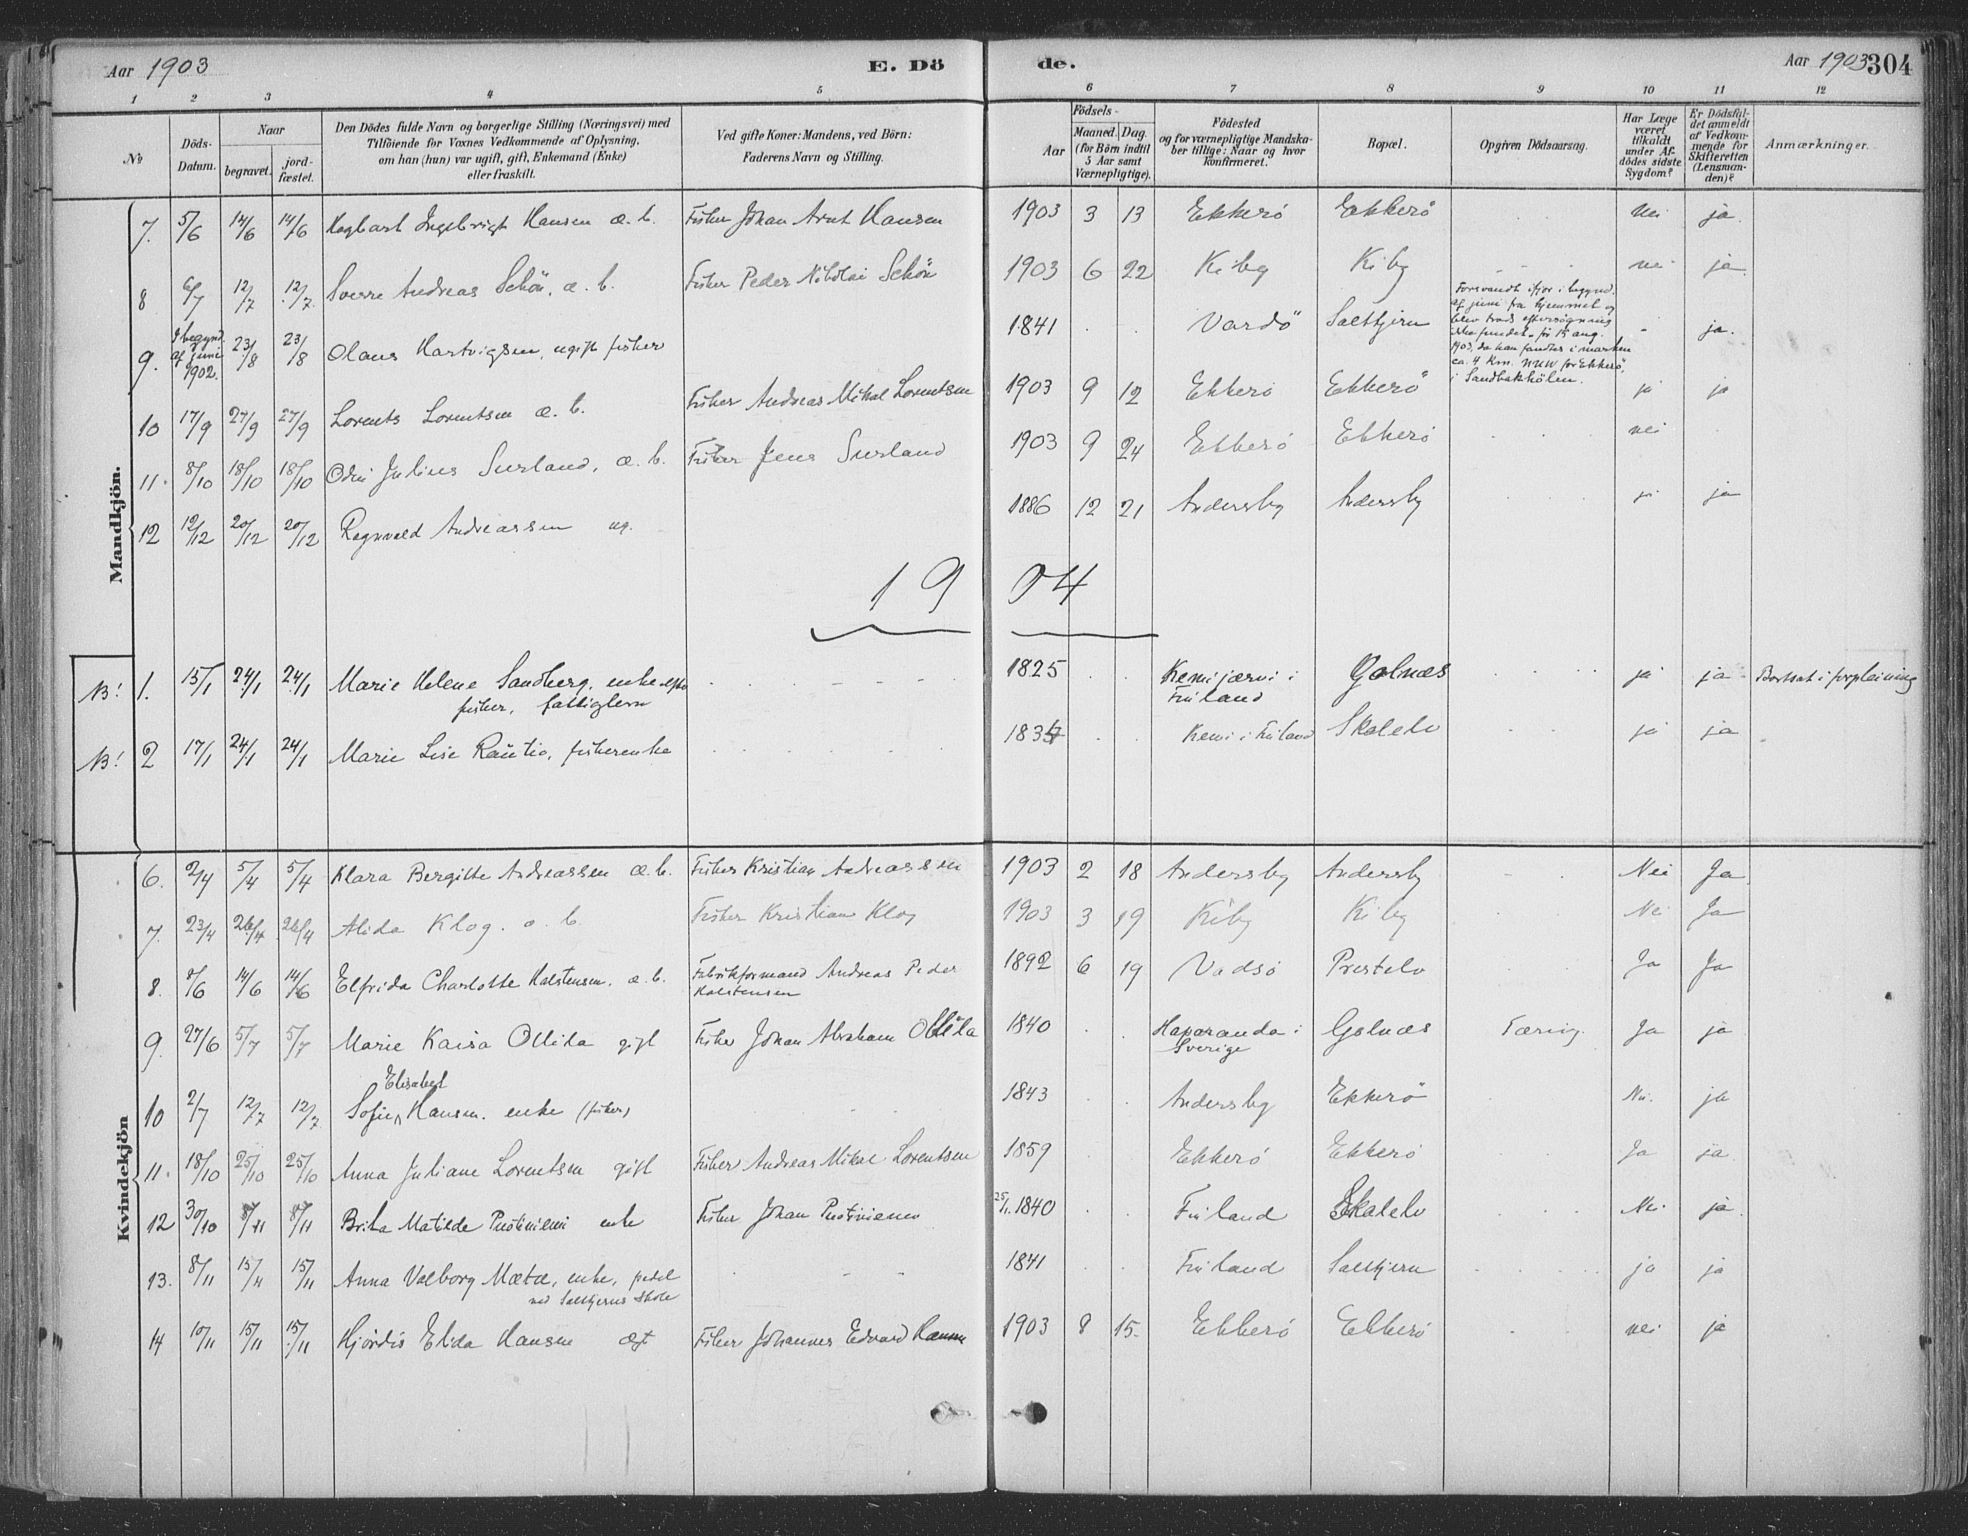 Aar 1903 E. Dö de. Aar 1903 304
1 2 3 4 5 6 7 8 9 10 11 12
No
Döds-Datum.
Naar
begravet.
jord-fæstet.
Den Dödes fulde Navn og borgerlige Stilling (Næringsvei) med
Tilföiende for Voxnes Vedkommende af Oplysning,
om han (hun) var ugift, gift, Enkemand (Enke)
eller fraskilt.
Ved gifte Koner: Mandens, ved Börn:
Faderens Navn og Stilling.
Födsels-
Aar
Maaned. Dag.
(for Börn indtil
5 Aar samt
Værnepligtige).
Födested
og for værnepligtige Mandska-
ber tillige: Naar og hvor
Konfirmeret.
Bopæl.
Opgiven Dödsaarsag.
Har Læge
været
tilkaldt
under Af-
dödes sidste
Sygdom?
Er Dödsfal-
det anmeldt
af Vedkom-
mende for
Skifteretten
(Lensman-
den)?
Anmærkninger.
Mandkjön.
7. 5/6 14/6 14/6 Hagbart Ingebrigt Hansen æ. b. Fisker Johan Arnt Hansen 1903 3 13 Ekkerö Ekkerö nei ja.
8 6/7 12/7 12/7 Sverre Andreas Schön, æ. b. Fisker Peder Nikolai Schön 1903 6 22 Kiby Kiby nei ja.
9. I begynd. af juni 1902. 23/8 23/8 Olaus Hartvigsen, ugift fisker 1841 Vardö Saltjern
Forsvandt ifjor i begynd.
af juni fra hjemmet og
blev trods eftersøgning
ikke fundet før 15 aug.
1903, da han fandtes i marken
ca. 4 Km. NNW for Ekkerö,
i Sandbakhölen.
ja.
10 17/9 27/9 27/9 Lorents Lorentsen æ. b. Fisker Andreas Mikal Lorentsen 1903 9 12 Ekkerö Ekkerö ja ja
11. 8/10 18/10 18/10 Odin Julius Surland, æ. b. Fisker Jens Surland 1903 9 24 Ekkerö Ekkerö nei
12 12/12 20/12 20/12 Ragnvald Andreassen ug. 1886 12 21 Andersby Andersby ja ja
19 04
N! 1. 15/1 24/1 24/1 Marie Helene Sandberg, enke efter
fisker, fattiglem 1825 Kemijærvi i
Finland Golnæs ja ja Bortsat i forpleining
N! 2 17/1 24/1 24/1 Marie Lise Rautio, fiskerenke Kemi i Finland Skalelv ja ja
Kvindekjön
6. 2/4 5/4 5/4 Klara Bergitte Andreassen æ. b. Fisker Kristian Andreassen 1903 2 18 Andersby Andersby Nei Ja
7. 23/4 26/4 26/4 Alida Klog. æ. b. Fisker Kristian Klog 1903 3 19 Kiby Kiby Nei Ja
8. 8/6 14/6 14/6 Elfrida Charlotte Halstensen, æ. b. Fabrikformand Andreas Peder
Halstensen 1892 6 19 Vadsö Prestelv Ja Ja
9. 27/6 5/7 5/7 Marie Kaisa Ollila gift Fisker Johan Abraham Ollila 1840 Haparanda i
Sverige Golnæs Tæring. Ja ja
Elisabet
10 2/7 12/7 12/7 Sofie Hansen. enke (fisker) 1843 Andersby Ekkerö Nei. ja
11. 18/10 25/10 25/10 Anna Juliane Lorentsen gift Fisker Andreas Mikal Lorentsen 1859 Ekkerö Ekkerö Ja ja.
12 30/10 8/11 8/11 Brita Matilde Pustiniemi enke Fisker Johan Pustiniemi 25/1. 1840 Finland Skalelv Nei ja.
13. 8/11 15/11 15/11 Anna Valborg Mætæ, enke, pedel
ved Saltjerns skole 1841 Finland Saltjern ja ja
14 10/11 15/11 15/11 Hjördis Elida Hansen ægt Fisker Johannes Edvard Hansen 1903 8 15. Ekkerö Ekkerö nei ja